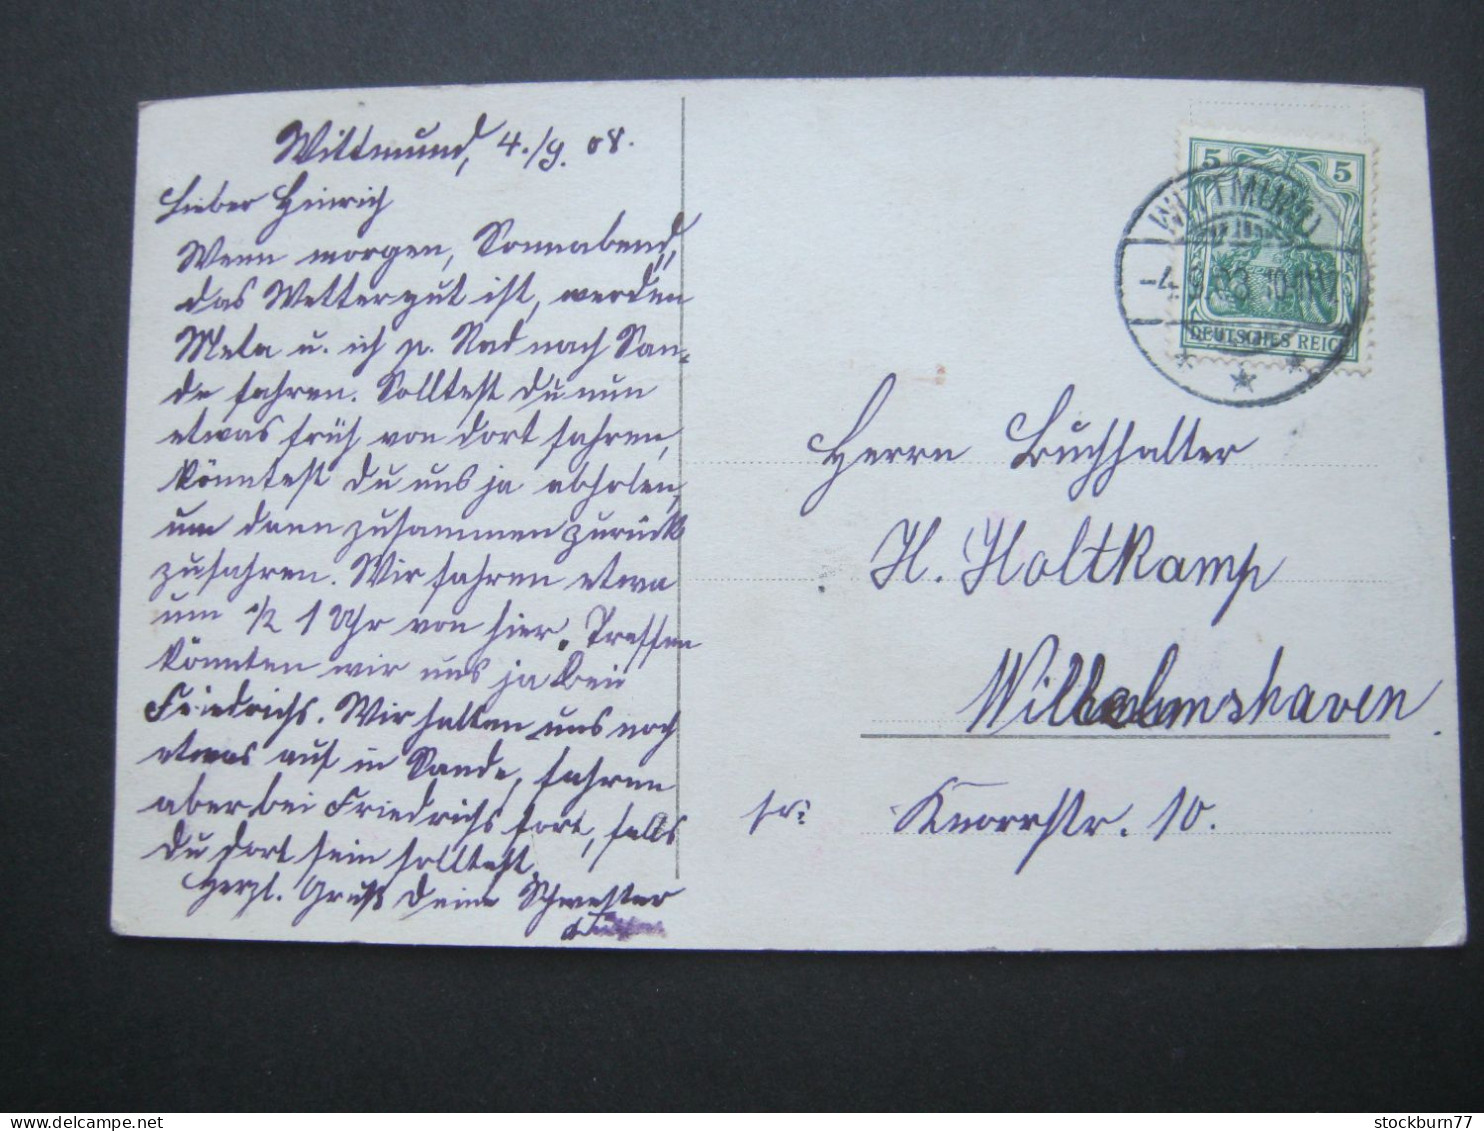 Wittmund, 4./9. 08.
Lieber Hinrich
Wenn morgen, Sonnabend,
das Wetter gut ist, werden
Meta u. ich p. Rad nach San-
de fahren. Solltest Du nun
etwas früh von dort fahren,
könntest Du uns ja abholen,
um dann zusammen zurück
zufahren. Wir fahren etwa
um 1/2 1 Uhr von hier. Treffen
könnten wir uns ja bei
Friedrichs. Wir halten uns noch
etwas auf in Sande, fahren
aber bei Friedrichs fort, falls
Du dort sein solltest.
Herzl. Gruß Deine Schwester
5 5
WITTMUND
-4.9.08. 10-11V.
DEUTSCHES REICH
Herrn Buchhalter
H. Holtkamp
Wilhelmshaven.
fr: Knorrstr. 10.
stockburn77